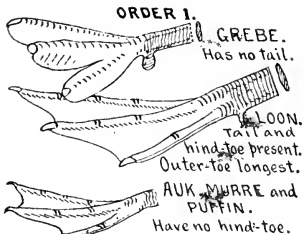 ORDER 1.
GREBE.
Has no tail.
LOON.
Tail and
hind-toe present.
Outer-toe longest.
AUK, MURRE and
PUFFIN.
Have no hind-toe.